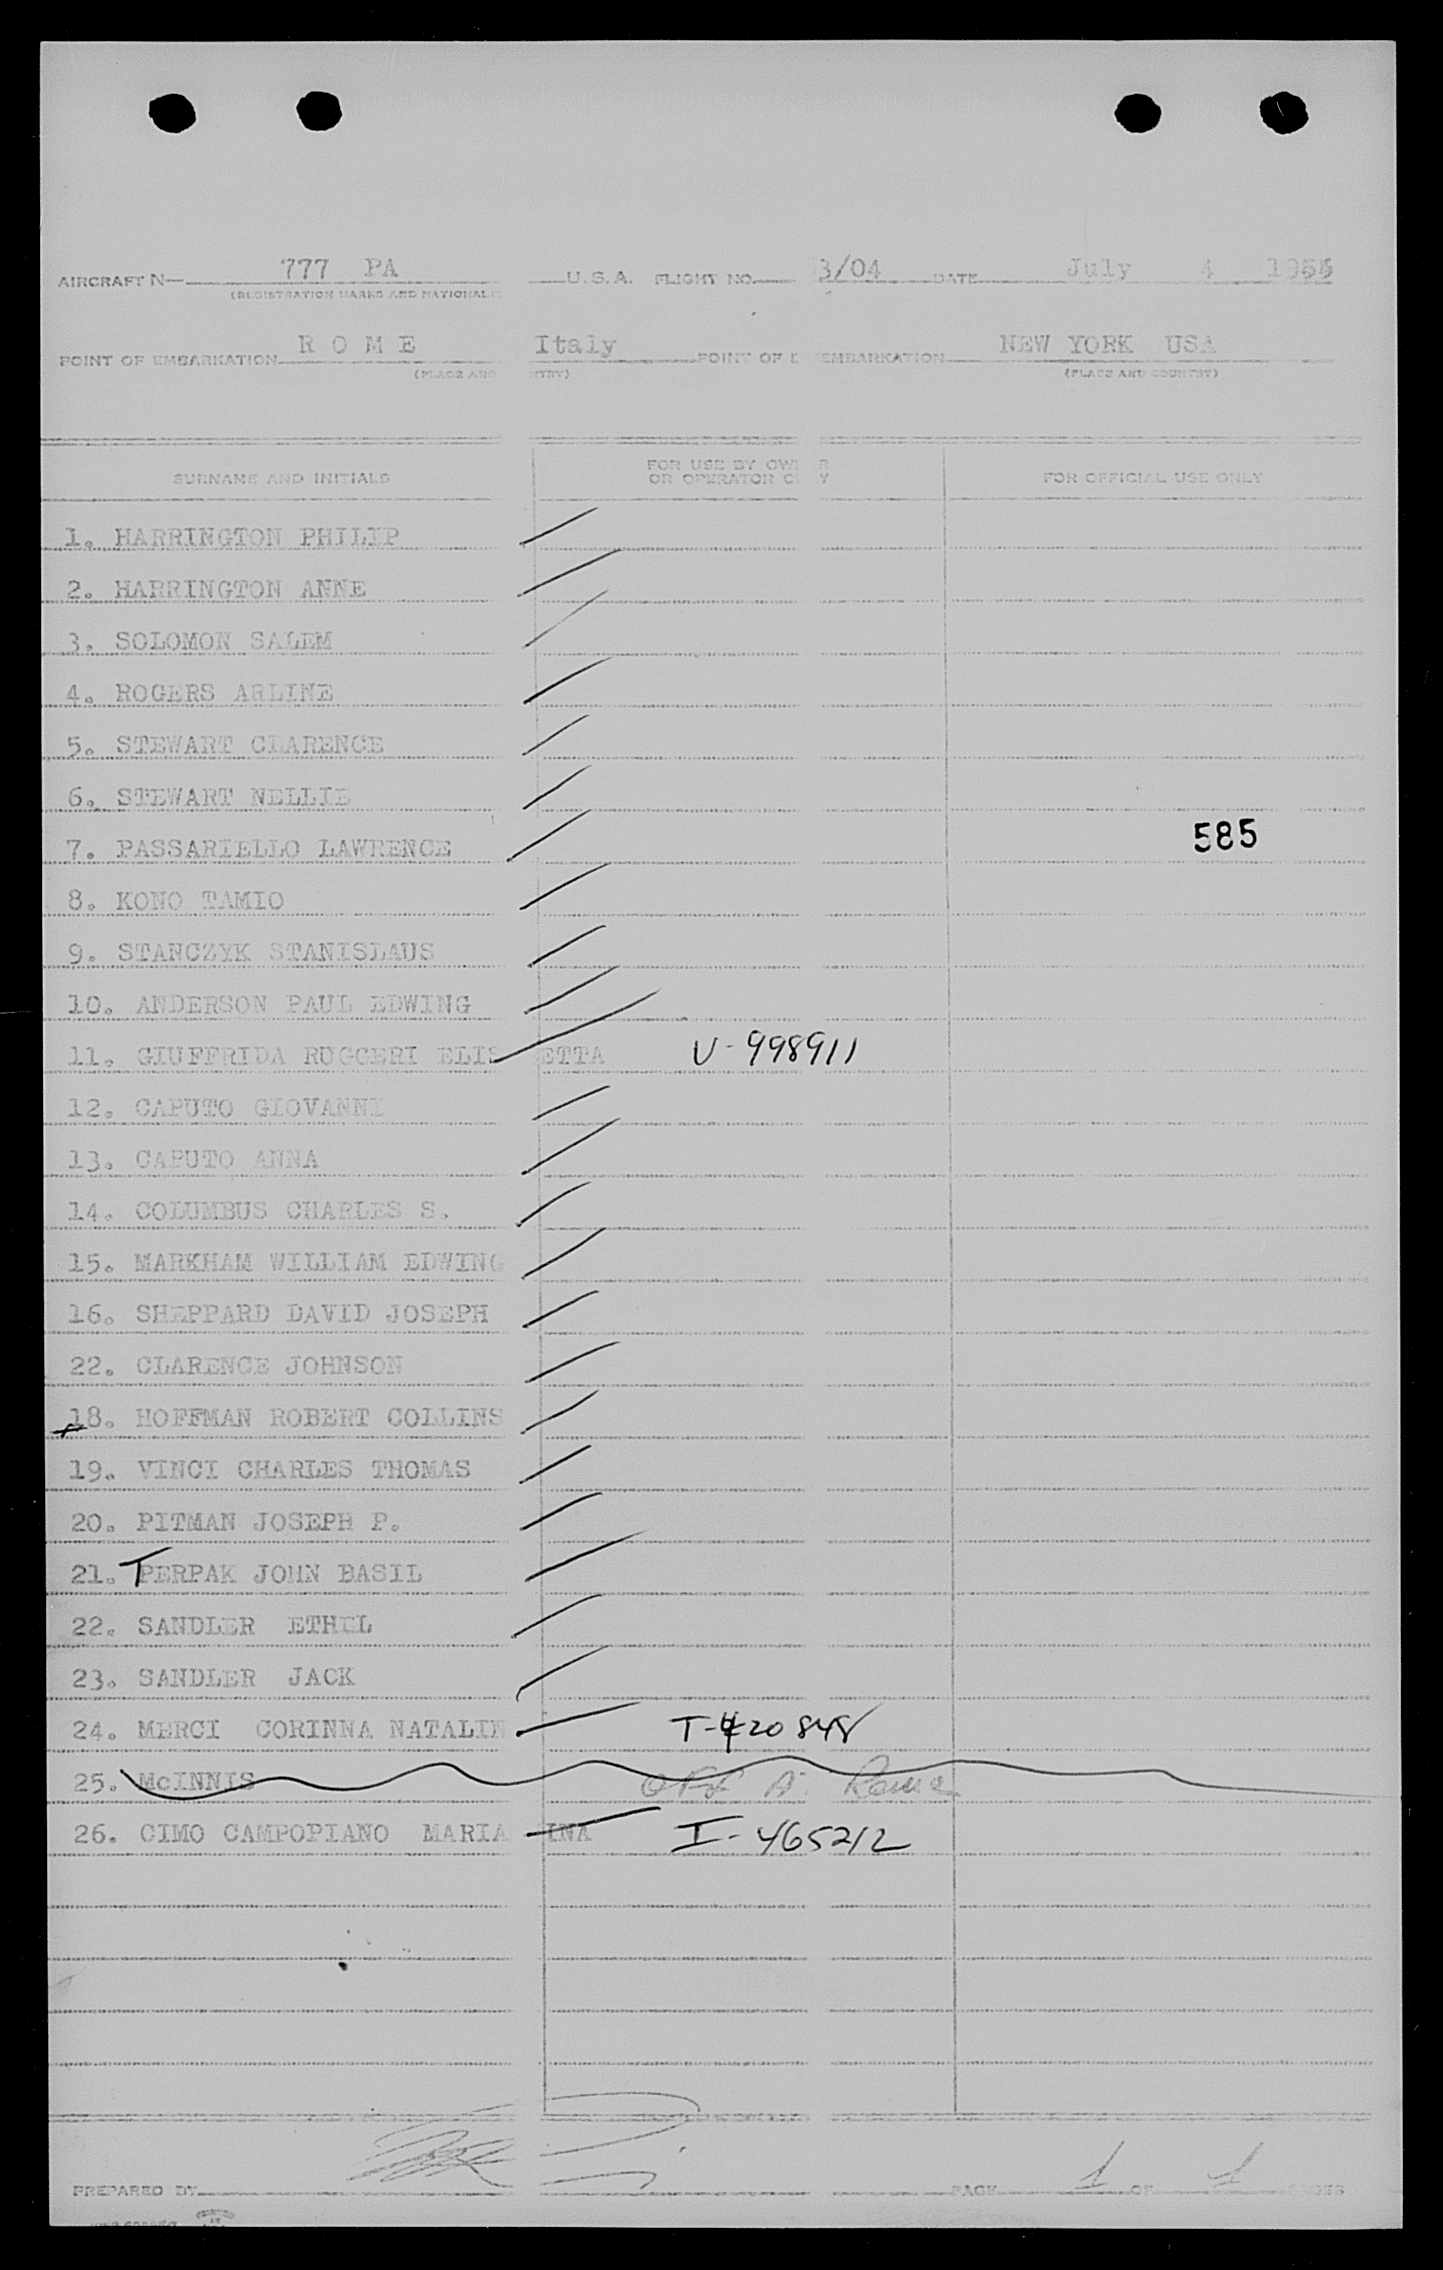 AIRCRAFT N— 777 PA U.S.A. FLIGHT NO. 3/04 DATE July 4 1955
(REGISTRATION MARKS AND NATIONALI
POINT OF EMBARKATION R O M E Italy POINT OF EMBARKATION NEW YORK USA
(PLACE AND NTRY) (PLACE AND COUNTRY)
SURNAME AND INITIALS FOR USE BY OWNER OR OPERATOR ONLY FOR OFFICIAL USE ONLY
1. HARRINGTON PHILIP
2. HARRINGTON ANNE
3. SOLOMON SALEM
4. ROGERS ARLINE
5. STEWART CLARENCE
6. STEWART NELLIE
7. PASSARIELLO LAWRENCE 585
8. KONO TAMIO
9. STANCZYK STANISLAUS
10. ANDERSON PAUL EDWING
11. GIUFFRIDA RUGGERI ELIS ETTA V-998911
12. CAPUTO GIOVANNI
13. CAPUTO ANNA
14. COLUMBUS CHARLES S.
15. MARKHAM WILLIAM EDWING
16. SHEPPARD DAVID JOSEPH
22. CLARENCE JOHNSON
18. HOFFMAN ROBERT COLLINS
19. VINCI CHARLES THOMAS
20. PITMAN JOSEPH P.
21. TPERPAK JOHN BASIL
22. SANDLER ETHEL
23. SANDLER JACK
24. MERCI CORINNA NATALIN T-420848
25. McINNIS
26. CIMO CAMPOPIANO MARIA INA I-465212
PREPARED BY PAGE 1 OF 1 PAGES